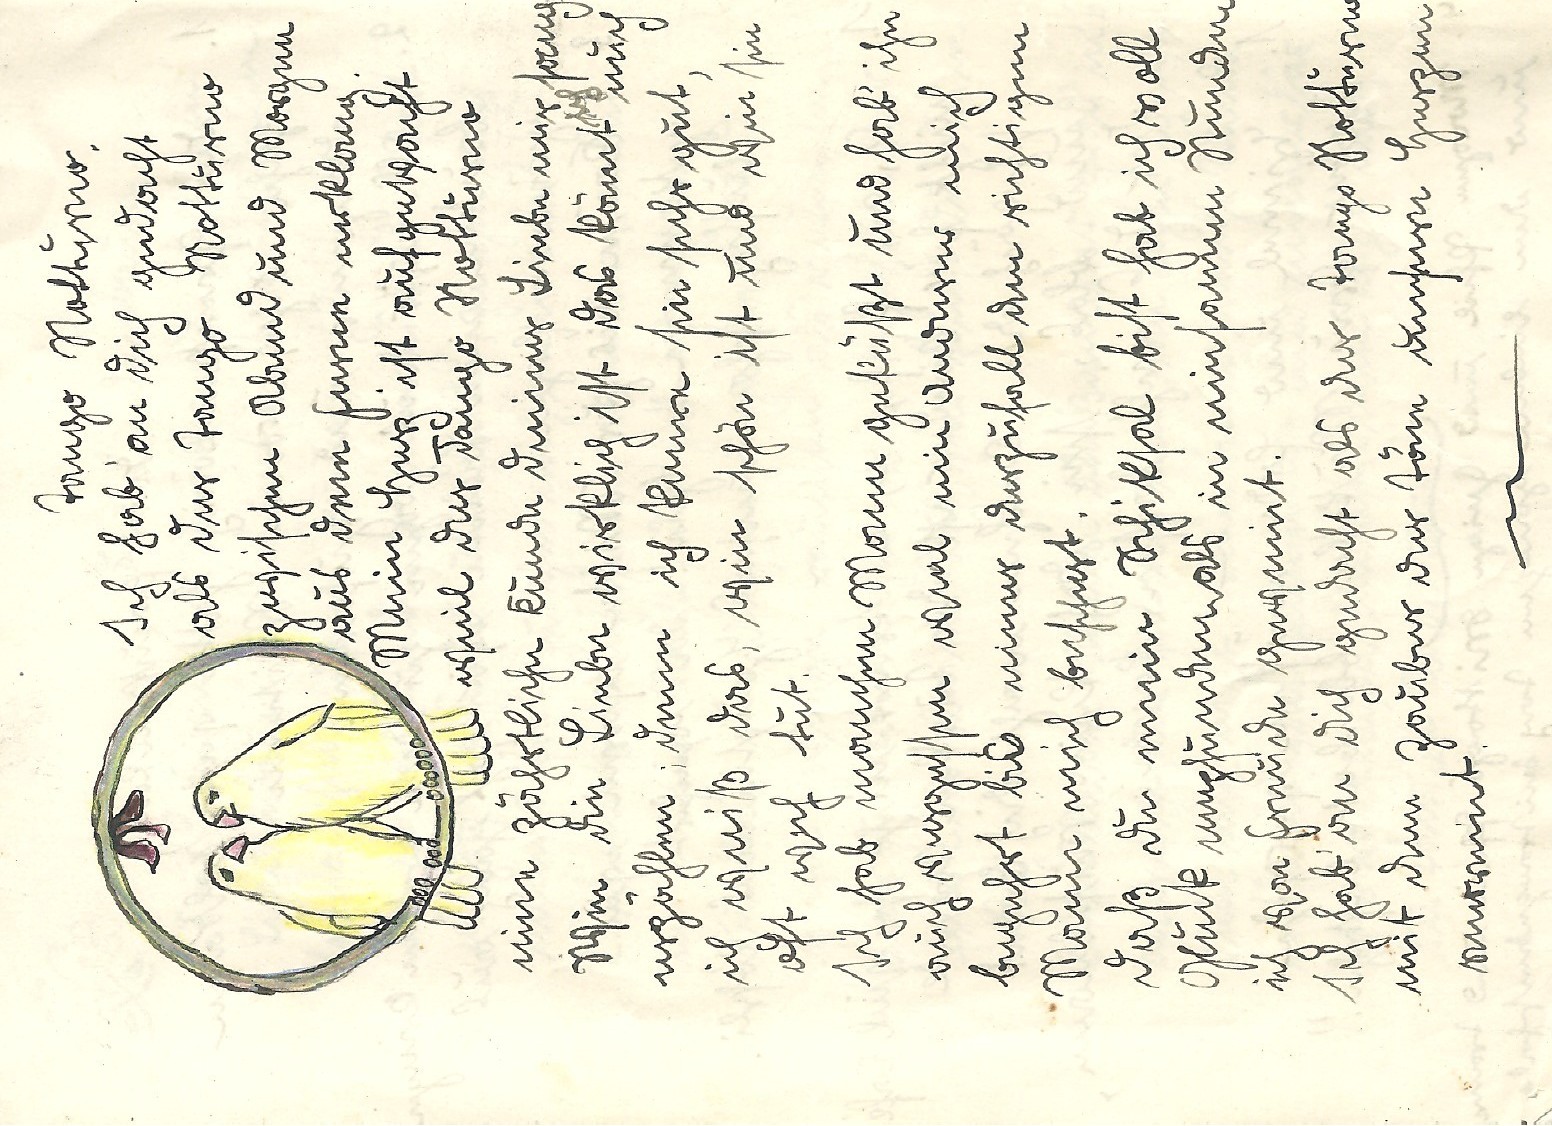 Tango Notturno.
Ich hab' an dich gedacht
als der Tango Notturno
zwischen Abend und Morgen
aus dem Ferne erklang.
Mein Herz ist aufgewacht
weil der Tango Notturno
eine zährtliche Kunde deiner Liebe mir sang
Wie die Liebe wirklich ist das könnt ich euch
erzählen; denn ich kenne sie sehr gut,
ich weiß das, wie schön ist und wie sie
oft weh tut.
Ich hab manchen Mann geküßt und hab' ihn
auch vergessen weil ein Anderer mich
begehrt bis einer derzufall den richtigen
Mann mich beschert.
Daß du mein Schiksal bist hab ich voll
Glück empfunden, als in einsamen Stunden
ich von Freude geweint.
Ich hab' an dich gedacht als der Tango Notturno
mit dem Zauber der Töne unsere Herzen
vereint.